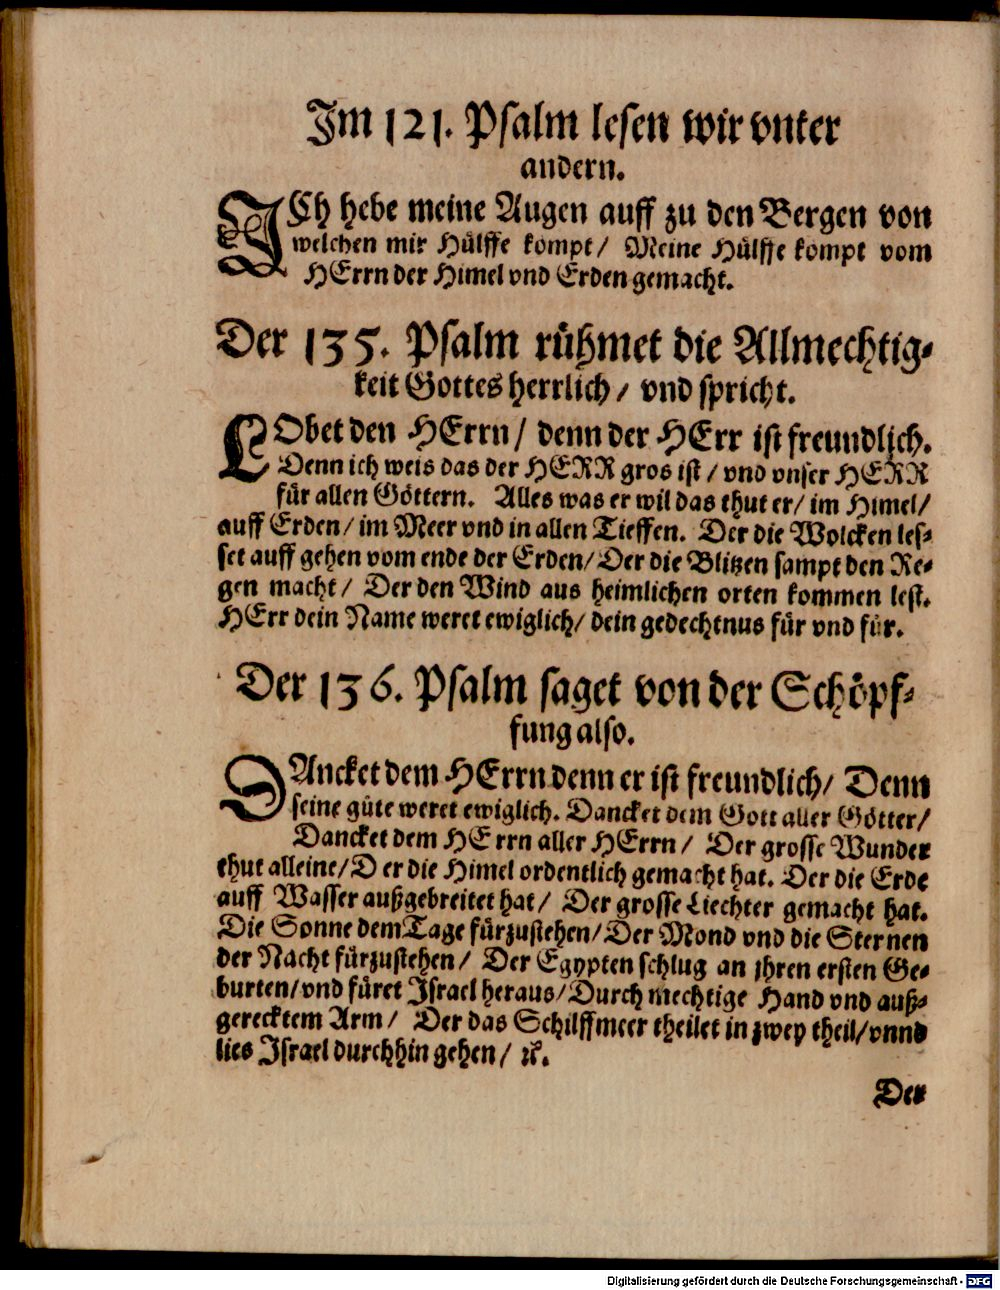 Im 121. Psalm lesen wir vnter
andern.
ICh hebe meine Augen auff zu den Bergen von
welchen mir Hülffe kompt/ Meine Hülffe kompt vom
HErrn der Himel vnd Erden gemacht.
Der 135. Psalm rühmet die Allmechtig-
keit Gottes herrlich/ vnd spricht.
LObet den HErrn/ denn der HErr ist freundlich.
Denn ich weis das der HERR gros ist/ vnd vnser HERR
für allen Göttern. Alles was er wil das thut er/ im Himel/
auff Erden/ im Meer vnd in allen Tieffen. Der die Wolcken les-
set auff gehen vom ende der Erden/ Der die Blitzen sampt den Re-
gen macht/ Der den Wind aus heimlichen orten kommen lest.
HErr dein Name weret ewiglich/ dein gedechtnus für vnd für.
Der 136. Psalm saget von der Schöpf-
fung also.
DAncket dem HErrn denn er ist freundlich/ Denn
seine güte weret ewiglich. Dancket dem Gott aller Götter/
Dancket dem HErrn aller HErrn/ Der grosse Wunder
thut alleine/ Der die Himel ordentlich gemacht hat. Der die Erde
auff Wasser außgebreitet hat/ Der grosse Liechter gemacht hat.
Die Sonne dem Tage fürzustehen/ Der Mond vnd die Sternen
der Nacht fürzustehen/ Der Egypten schlug an ihren ersten Ge-
burten/ vnd füret Israel heraus/ Durch mechtige Hand vnd auß-
gerecktem Arm/ Der das Schilffmeer theilet in zwey theil/ vnnd
lies Israel durchhin gehen/ ꝛc.
Der
Digitalisierung gefördert durch die Deutsche Forschungsgemeinschaft - DFG